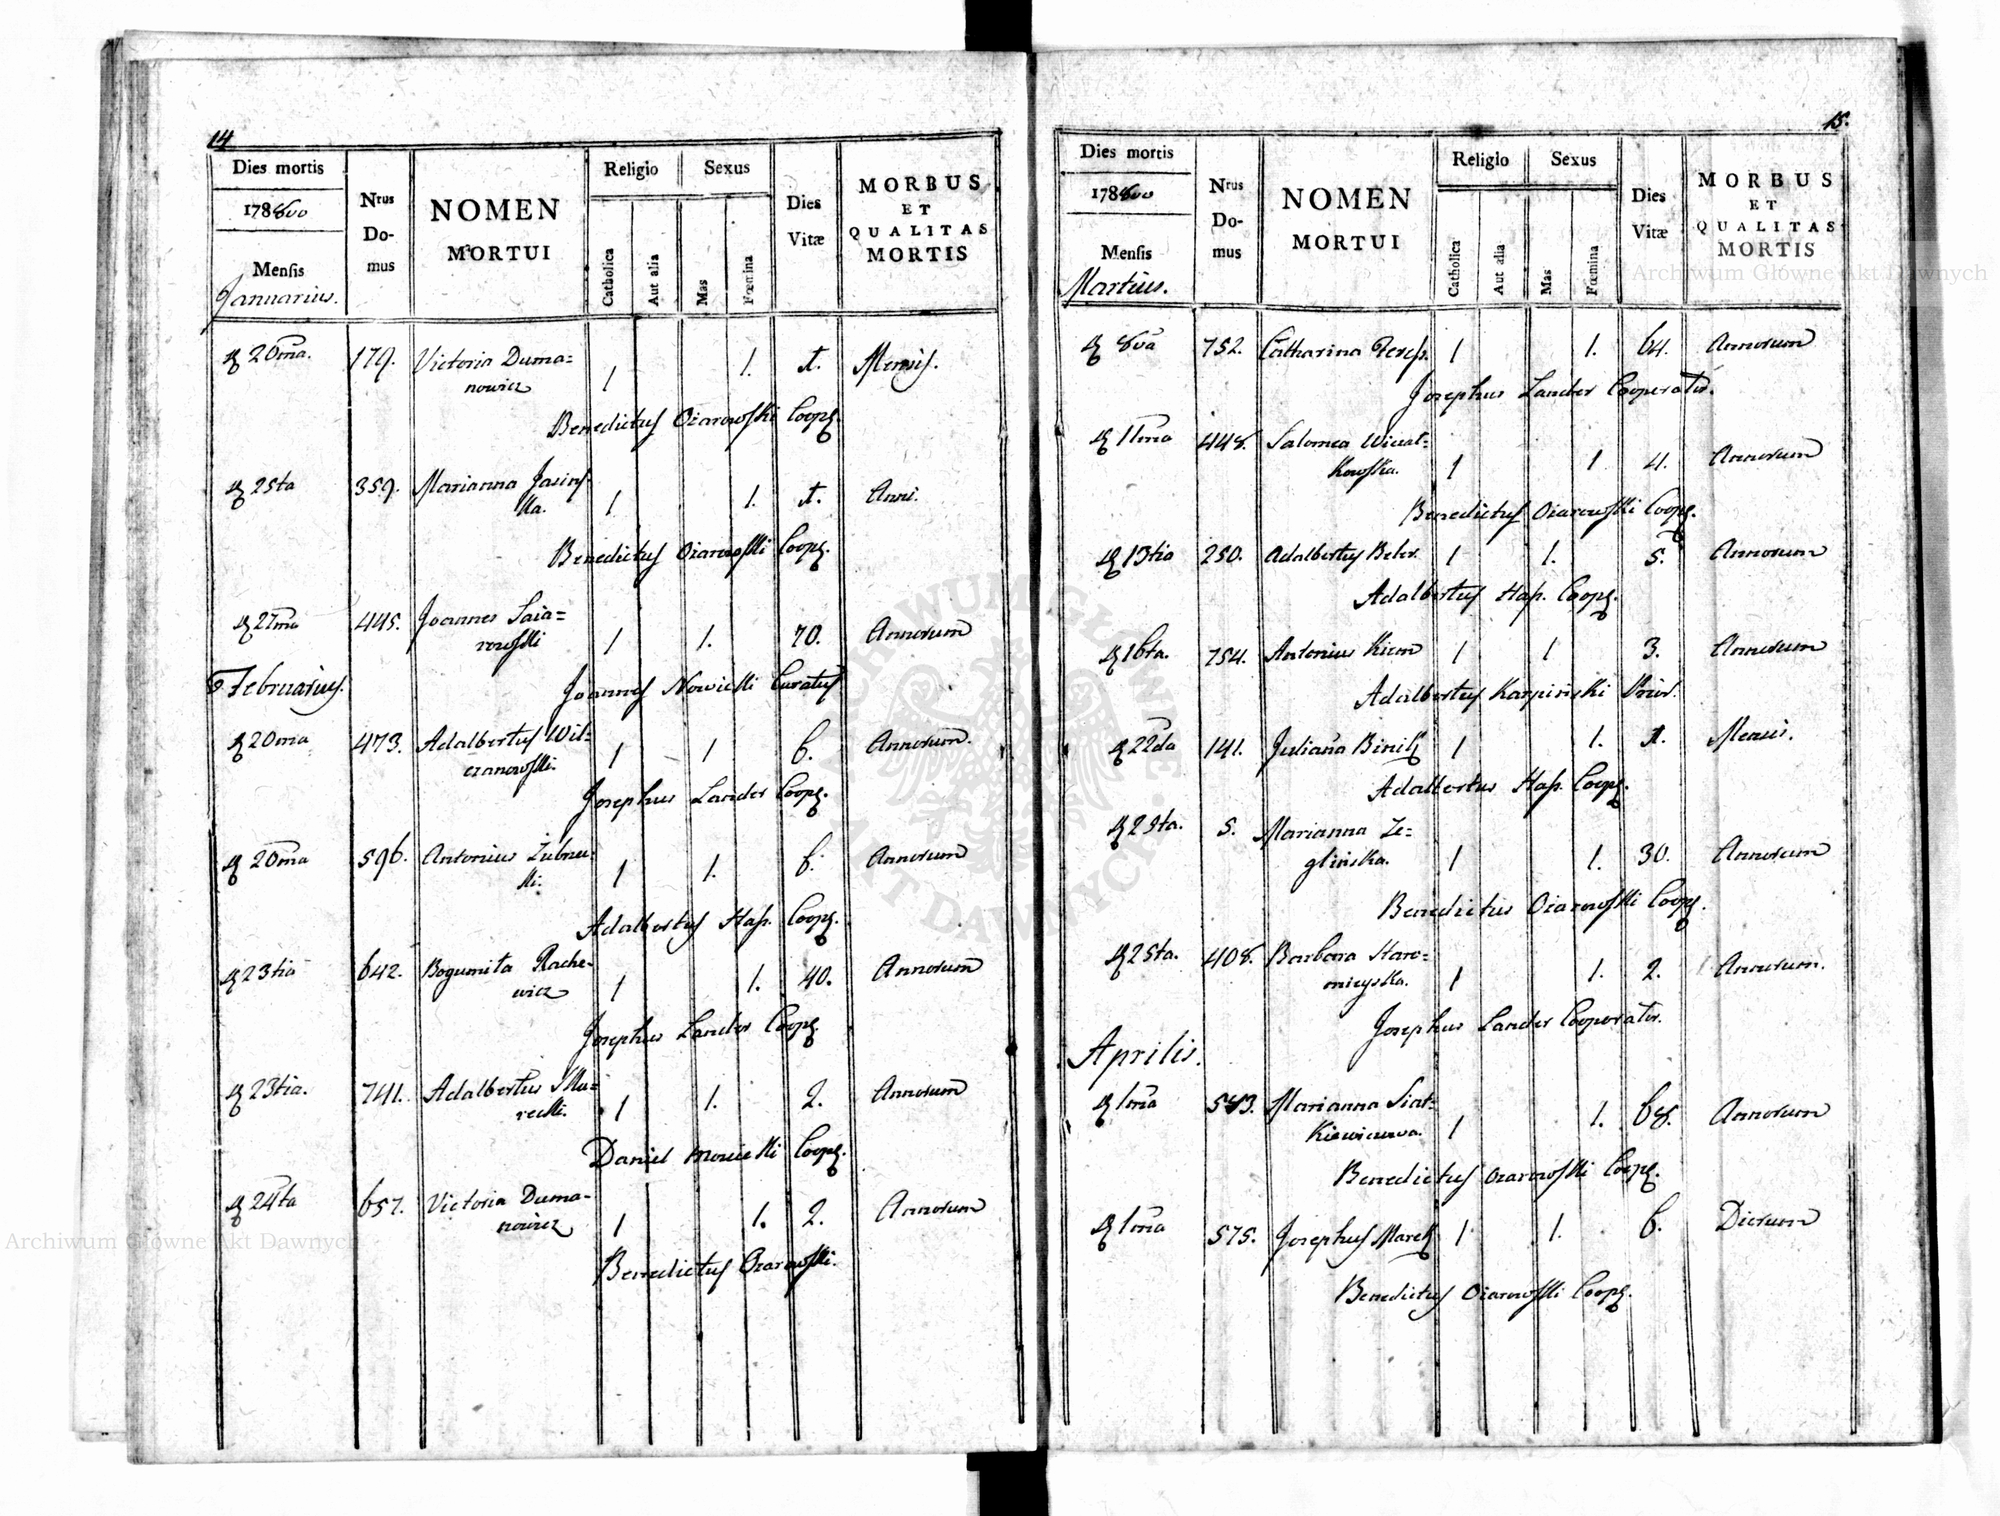 14
Dies mortis
Nrus Domus
NOMEN MORTUI
Religio
Sexus
Dies Vitæ
MORBUS ET QUALITAS MORTIS
178
Mensis
Catholica
Aut alia
Mas
Fœmina
Januarius.
20ma. 179. Victoria Duma=
nowicz 1 1. 1. Mensis.
Benedictus Ozarowski Coop.
25ta 359. Marianna Jasins
ka. 1 1. 1. Anni.
Benedictus Ozarowski Coop.
27ma 445. Joannes
1 1. 70. Annorum
Februarius.
Joannes Nowicki Curatus
20ma 473. Adalbertus Wil=
czanowski. 1 1 6. Annorum.
Josephus Lander Coop.
20ma 596. Antonius
ki. 1 1. 6. Annorum
Adalbertus Hap. Coop.
23tia 642. Bogumila Rache-
wicz 1 1. 40. Annorum
Josephus Lander Coop.
23tia. 741. Adalbertus Sku=
recki. 1 1. 2. Annorum
Daniel Coop.
24ta 657. Victoria Duma-
nowicz 1 1. 2. Annorum
Benedictus Ozarowski.
15.
Dies mortis
Nrus Domus
NOMEN MORTUI
Religio
Sexus
Dies Vitæ
MORBUS ET QUALITAS MORTIS
178
Mensis
Catholica
Aut alia
Mas
Fœmina
Martius.
8va 752. Catharina 1 1. 64. Annorum
Josephus Lander Cooperator.
11ma 448. Salomea
kowska. 1 1 4. Annorum
Benedictus Ozarowski Coop.
13tia 250. Adalbertus 1 1. 5. Annorum
Adalbertus Hap. Coop.
16ta. 754. Antonius Kiem 1 1 3. Annorum
Adalbertus Karpinski
22da 141. Juliana 1 1. 1. Mensis.
Adalbertus Hap. Coop.
25ta. 5. Marianna Ze=
glinska. 1 1. 30. Annorum
Benedictus Ozarowski Coop.
25ta. 408. Barbara
1 1. 2. Annorum.
Josephus Lander Cooperator.
Aprilis.
1ma 583. Marianna Siat=
kiewiczowa. 1 1. 68. Annorum
Benedictus Ozarowski Coop.
1ma 575. Josephus Marek 1 1. 6. Dierum
Benedictus Ozarowski Coop.
Archiwum Główne Akt Dawnych
Archiwum Główne Akt Dawnych
ARCHIWUM GŁÓWNE AKT DAWNYCH